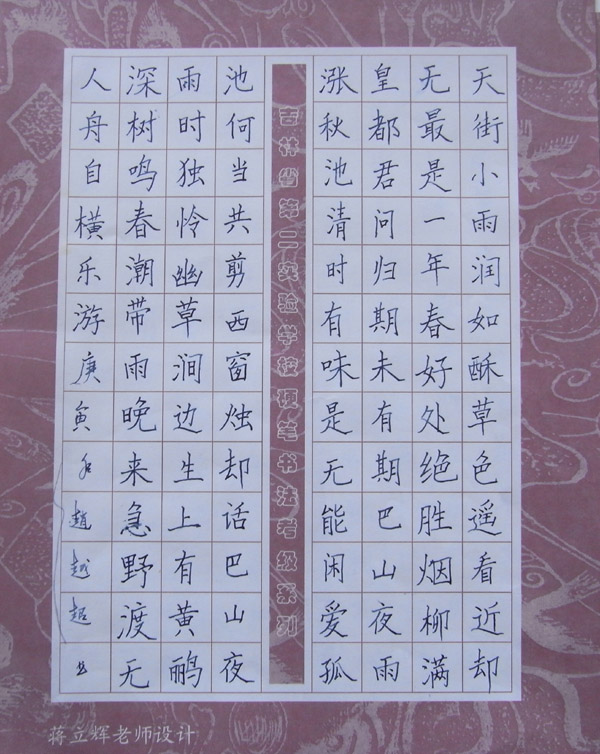 天街小雨润如酥草色遥看近却
无最是一年春好处绝胜烟柳满
皇都君问归期未有期巴山夜雨
涨秋池清时有味是无能闲爱孤
吉林省第二实验学校硬笔书法考级系列
池何当共剪西窗烛却话巴山夜
雨时独怜幽草涧边生上有黄鹂
深树鸣春潮带雨晚来急野渡无
人舟自横乐游庚寅趙越超书
蒋立辉老师设计